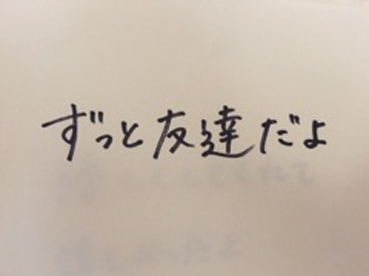 ずっと友達だよ